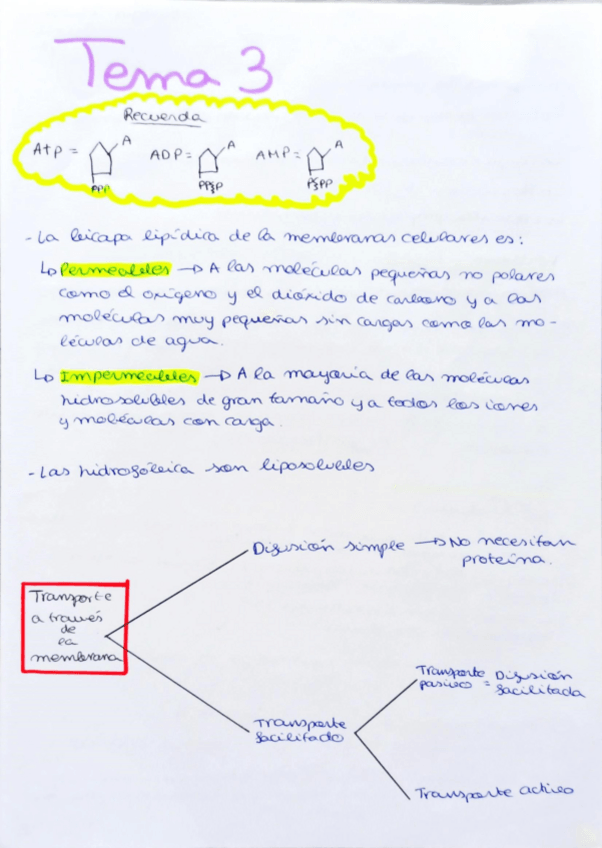 Tema 3
Recuerda
Atp = A ADP = A AMP = A
PPP PP}P P}PP
- La bicapa lipídica de la membranas celulares es:
↳ Permeables → A las moléculas pequeñas no polares
como el oxígeno y el dióxido de carbono y a las
moléculas muy pequeñas sin cargas como las mo-
léculas de agua.
↳ Impermeables → A la mayoría de las moléculas
hidrosolubles de gran tamaño y a todos los iones
y moléculas con carga.
- Las hidrofóbica son liposolubles
Difusión simple → No necesitan
proteína.
Transporte
a través
de
la
membrana
Transporte
facilitado
Transporte Difusión
pasivo = facilitada
Transporte activo